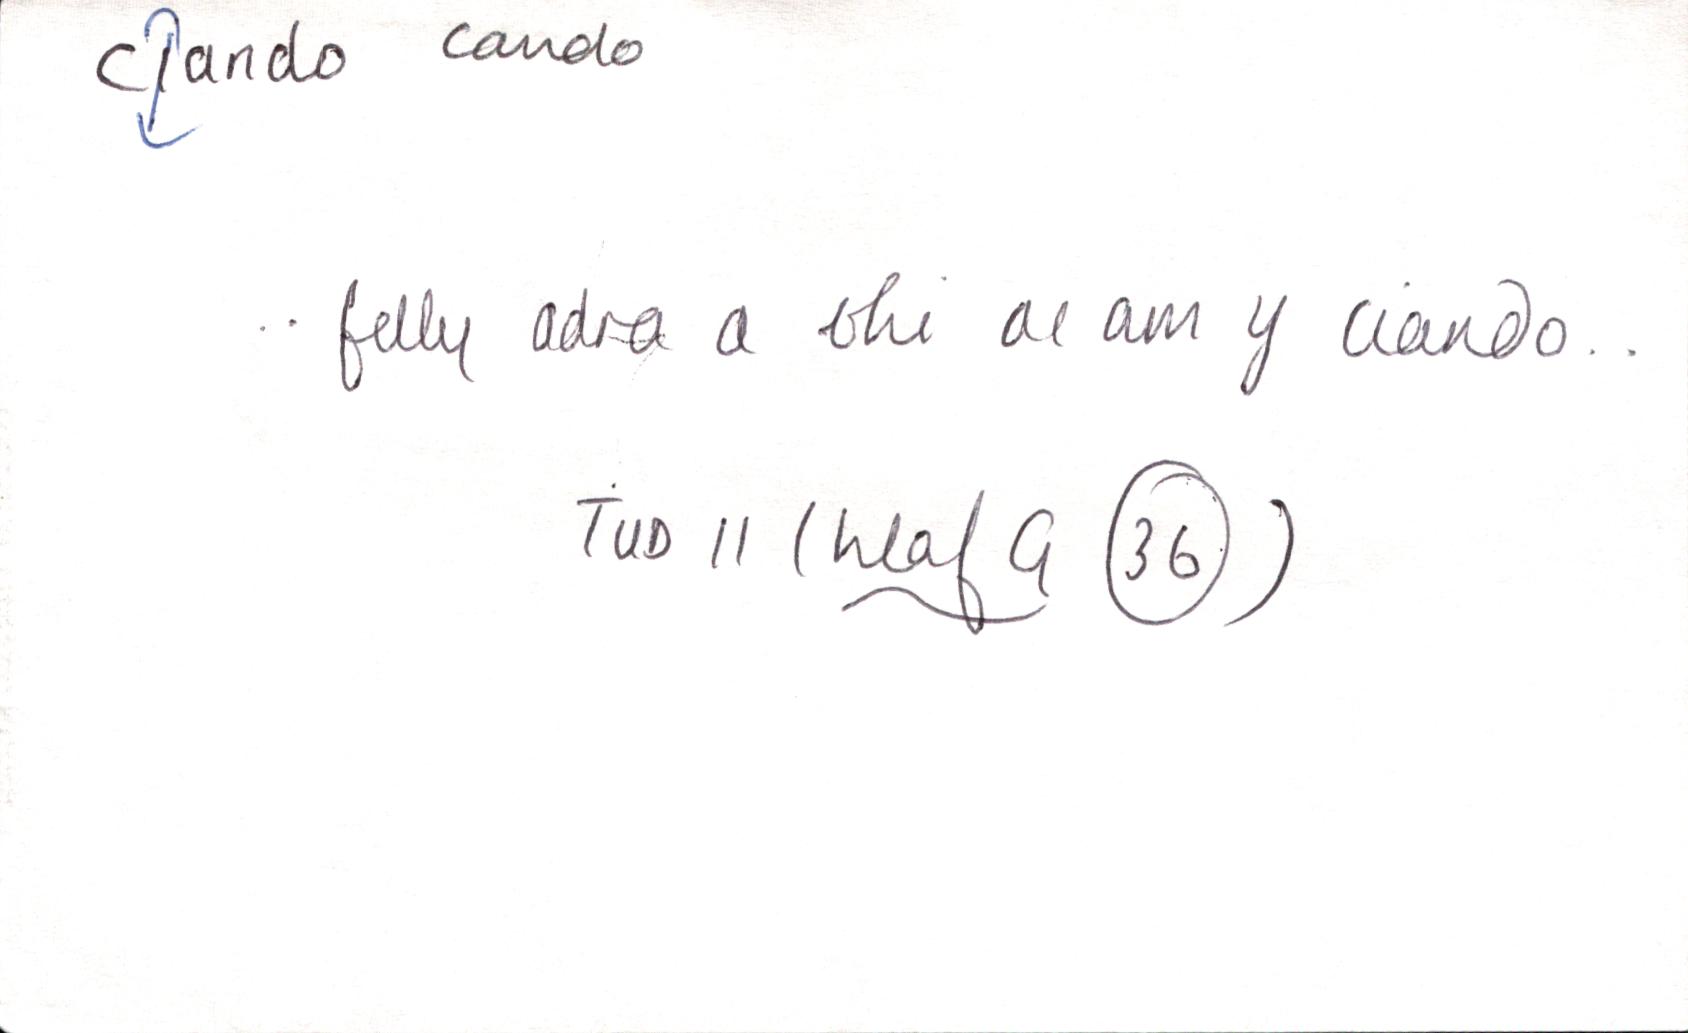 ciando cando
.. felly adra a thi ac am y ciando..
TUD 11 (Wlaf G 36)